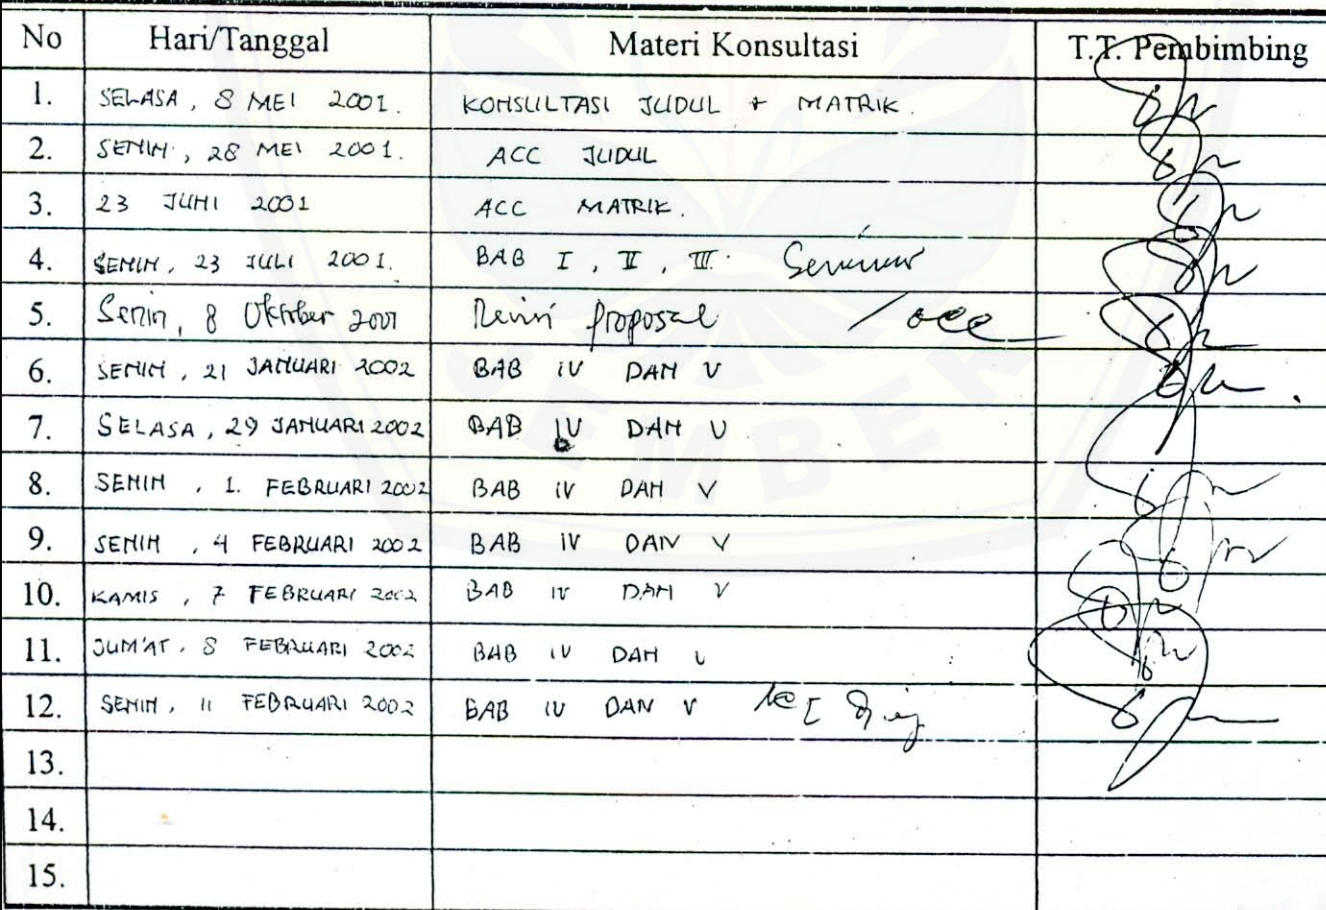 No Hari/Tanggal Materi Konsultasi T.T. Pembimbing
1. SELASA, 8 MEI 2001. KONSULTASI JUDUL + MATRIK.
2. SENIN, 28 MEI 2001. ACC JUDUL
3. 23 JUNI 2001 ACC MATRIK.
4. SENIN, 23 JULI 2001. BAB I, II, III. Seminar
5. Senin, 8 Oktober 2001 Revisi proposal / acc
6. SENIN, 21 JANUARI 2002 BAB IV DAN V
7. SELASA, 29 JANUARI 2002 BAB IV DAN V
8. SENIN, 1. FEBRUARI 2002 BAB IV DAN V
9. SENIN, 4 FEBRUARI 2002 BAB IV DAN V
10. KAMIS, 7 FEBRUARI 2002 BAB IV DAN V
11. JUM'AT, 8 FEBRUARI 2002 BAB IV DAN V
12. SENIN, 11 FEBRUARI 2002 BAB IV DAN V
13.
14.
15.
EMBER